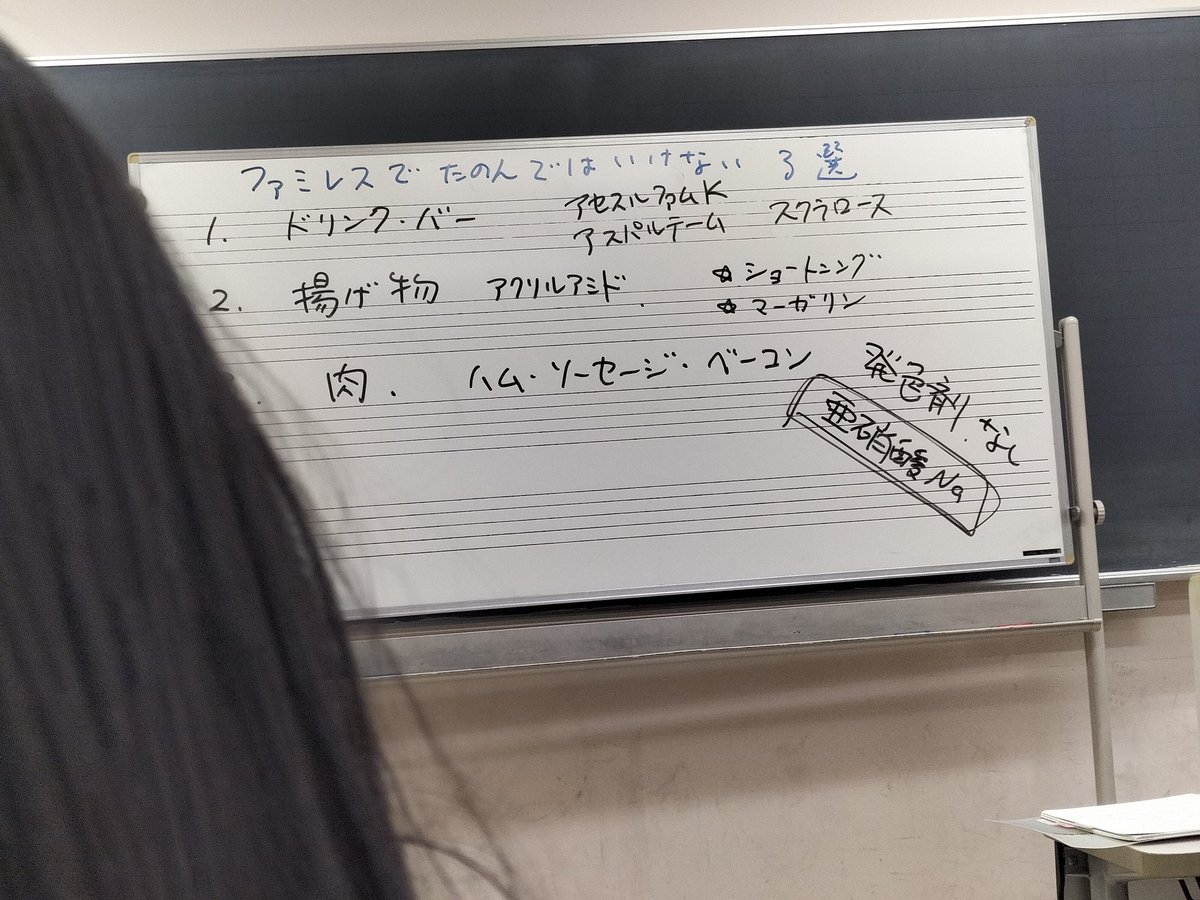 ファミレスでたのんではいけない 3選
1. ドリンク・バー アセスルファムK スクラロース
アスパルテーム
2. 揚げ物 アクリルアミド. ☆ショートニング
☆マーガリン
. 肉. ハム・ソーセージ・ベーコン 発色剤.なし
亜硝酸Na